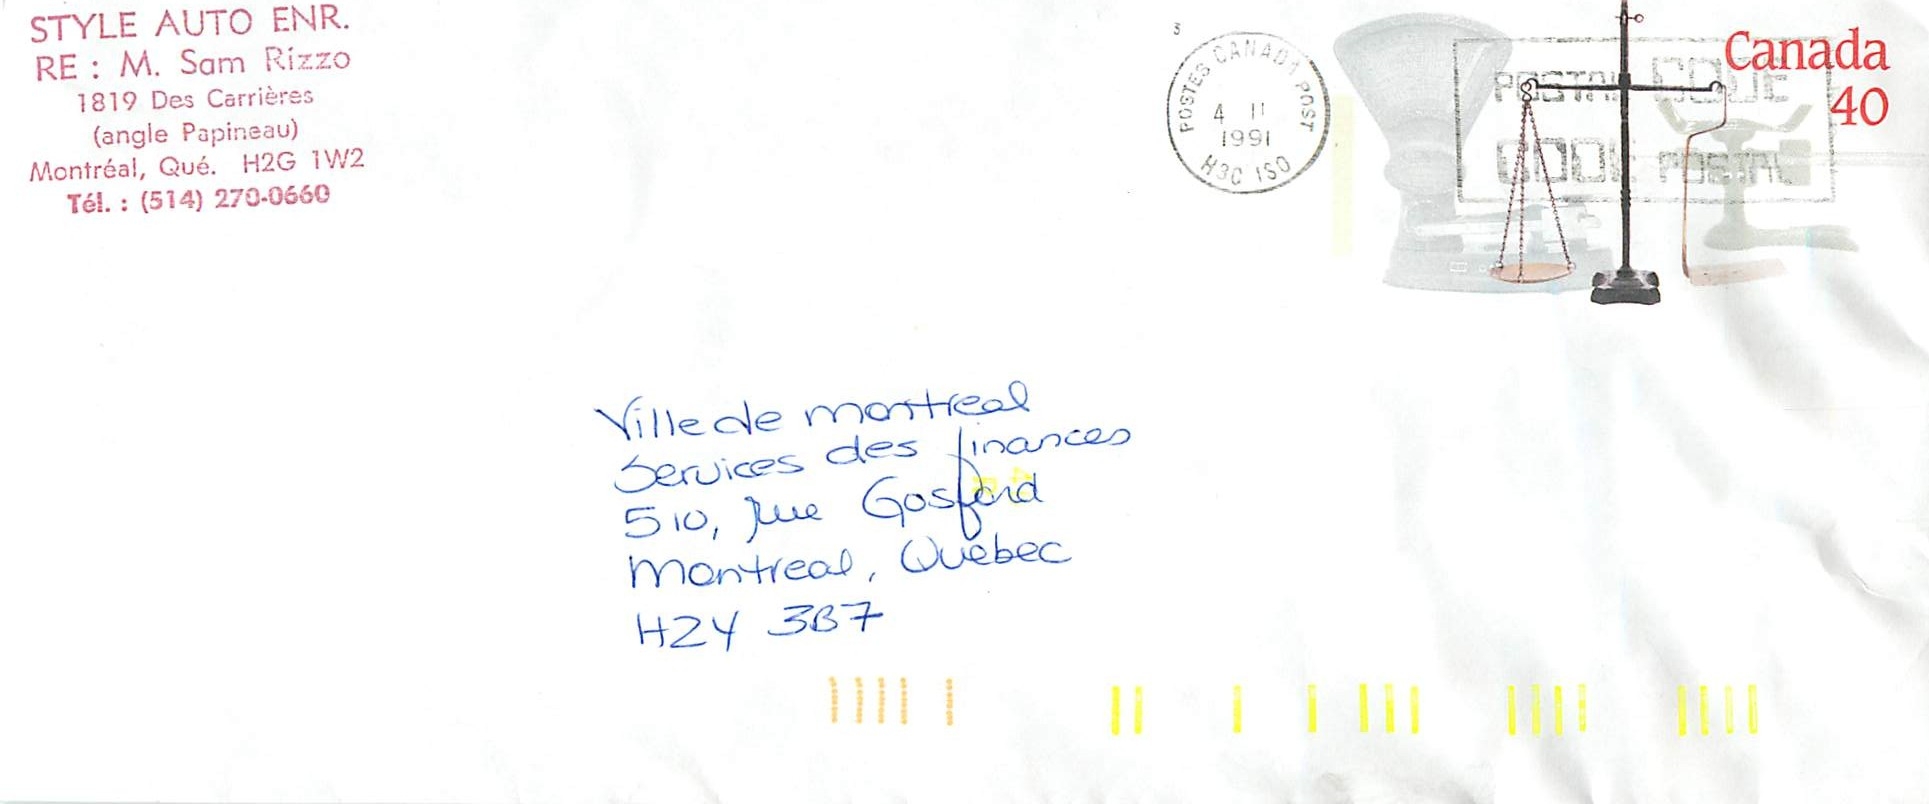 STYLE AUTO ENR.
RE : M. Sam Rizzo
1819 Des Carrières
(angle Papineau)
Montréal, Qué. H2G 1W2
Tél. : (514) 270-0660
3
POSTES CANADA POST
4 II
1991
H3C ISO
POSTAL CODE
CODE POSTAL
Canada
40
Ville de montreal
Services des finances
510, rue Gosford
Montreal, Quebec
H2Y 3B7